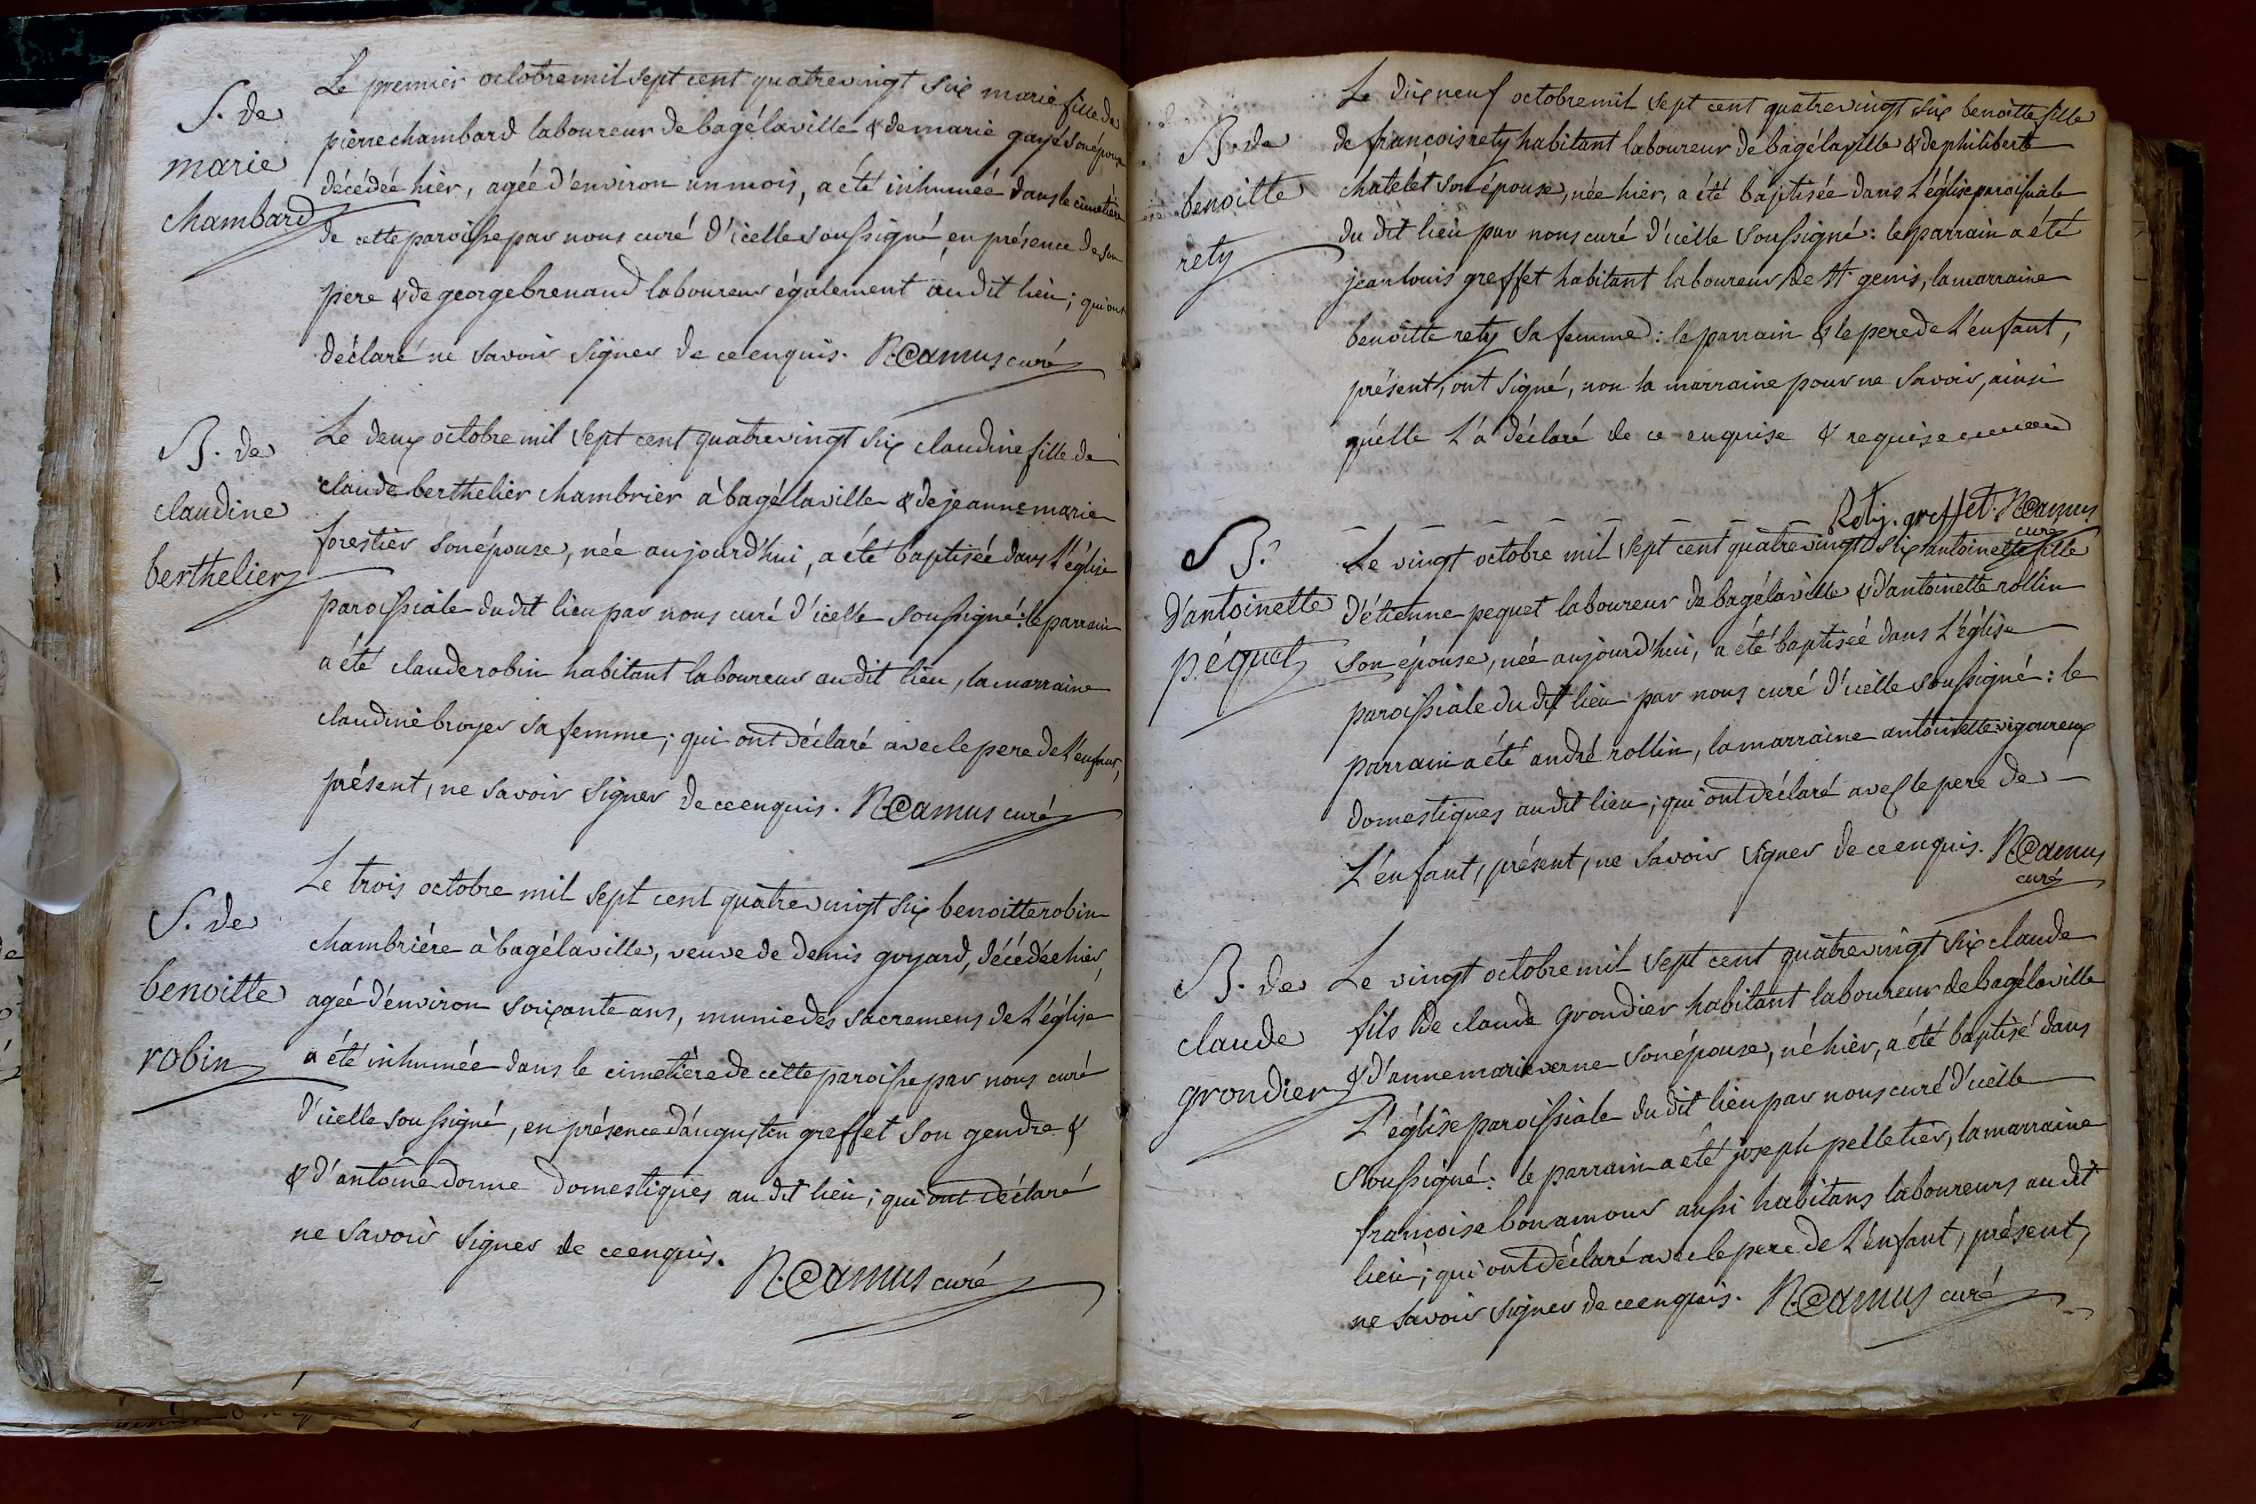 S. de
marie
chambard
Le premier octobre mil sept cent quatre vingt six marie fille de
pierre chambard laboureur de bagé la ville & de marie gayé son épouse
décédée hier, agée d'environ un mois, a été inhumée dans le cimetière
de cette paroisse par nous curé d'icelle soussigné, en présence de son
pere & de george brenaud laboureur également audit lieu; qui ont
déclaré ne savoir signer de ce enquis. R. Camus curé
B. de
claudine
berthelier
Le deux octobre mil sept cent quatre vingt six claudine fille de
claude berthelier chambrier à bagé la ville & de jeanne marie
forestier son épouse, née aujourd'hui, a été baptisée dans l'église
paroissiale du dit lieu par nous curé d'icelle soussigné: le parrain
a été claude robin habitant laboureur au dit lieu, la marraine
claudine broyer sa femme; qui ont déclaré avec le pere de l'enfant,
présent, ne savoir signer de ce enquis. R. Camus curé
S. de
benoitte
robin
Le trois octobre mil sept cent quatre vingt six benoitte robin
chambriére à bagé la ville, veuve de denis goyard, décédée hier,
agée d'environ soixante ans, munie des sacremens de l'église
a été inhumée dans le cimetière de cette paroisse par nous curé
d'icelle soussigné, en présence d'augustin greffet son gendre &
& d'antoine donne domestiques au dit lieu; qui ont déclaré
ne savoir signer de ce enquis.
R. Camus curé
B. de
benoitte
rety
Le dix neuf octobre mil sept cent quatre vingt six benoitte fille
de françois rety habitant laboureur de bagé la ville & de philiberte
chatelet son épouse, née hier, a été baptisée dans l'église paroissiale
du dit lieu par nous curé d'icelle soussigné: le parrain a été
jean louis greffet habitant laboureur de st genis, la marraine
benoitte rety sa femme: le parrain & le pere de l'enfant,
présent, ont signé, non la marraine pour ne savoir, ainsi
qu'elle l'a déclaré de ce enquise & requise
Rety. greffet. R. Camus
curé
B.
d'antoinette
péquet
Le vingt octobre mil sept cent quatre vingt six antoinette fille
d'étienne pequet laboureur de bagé la ville & d'antoinette rollin
son épouse, née aujourd'hui, a été baptisée dans l'église
paroissiale du dit lieu par nous curé d'icelle soussigné: le
parrain a été andré rollin, la marraine antoinette vigoureux
domestiques au dit lieu; qui ont déclaré avec le pere de
l'enfant, présent, ne savoir signer de ce enquis. R. Camus
curé
B. de
claude
grondier
Le vingt octobre mil sept cent quatre vingt six claude
fils de claude grondier habitant laboureur de bagé la ville
& d'anne marie verne son épouse, né hier, a été baptisé dans
l'église paroissiale du dit lieu par nous curé d'icelle
soussigné: le parrain a été joseph pelletier, la marraine
françoise bonamour aussi habitans laboureurs au dit
lieu; qui ont déclaré avec le pere de l'enfant, présent,
ne savoir signer de ce enquis. R. Camus curé